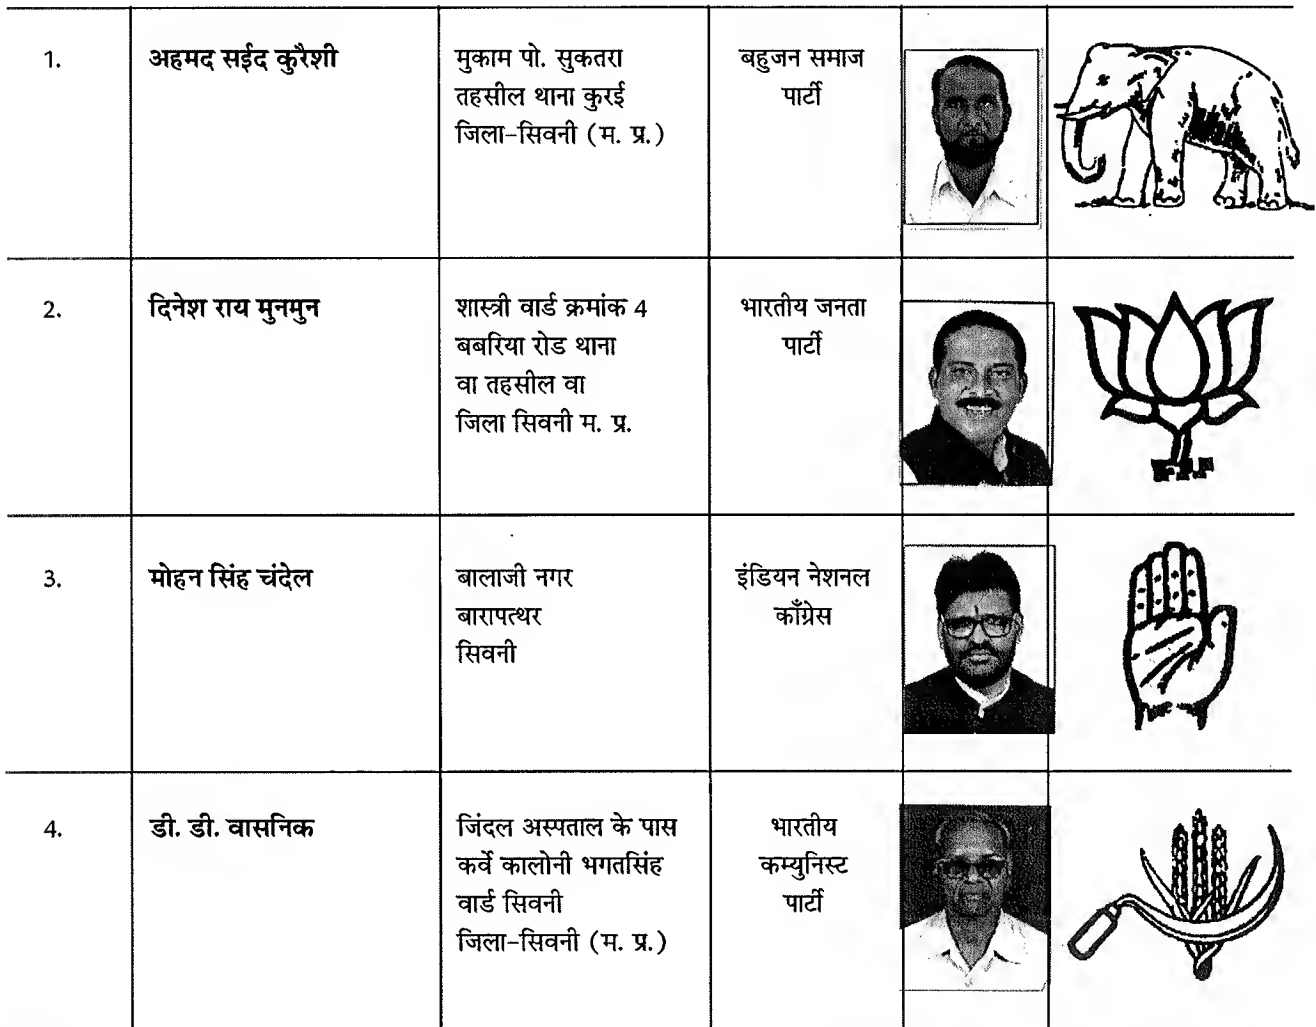 1.
अहमद सईद कुरैशी
मुकाम पो. सुकतरा
तहसील थाना कुरई
जिला-सिवनी (म. प्र.)
बहुजन समाज
पार्टी
2.
दिनेश राय मुनमुन
शास्त्री वार्ड क्रमांक 4
बबरिया रोड थाना
वा तहसील वा
जिला सिवनी म. प्र.
भारतीय जनता
पार्टी
3.
मोहन सिंह चंदेल
बालाजी नगर
बारापत्थर
सिवनी
इंडियन नेशनल
काँग्रेस
4.
डी. डी. वासनिक
जिंदल अस्पताल के पास
कर्वे कालोनी भगतसिंह
वार्ड सिवनी
जिला-सिवनी (म. प्र.)
भारतीय
कम्युनिस्ट
पार्टी